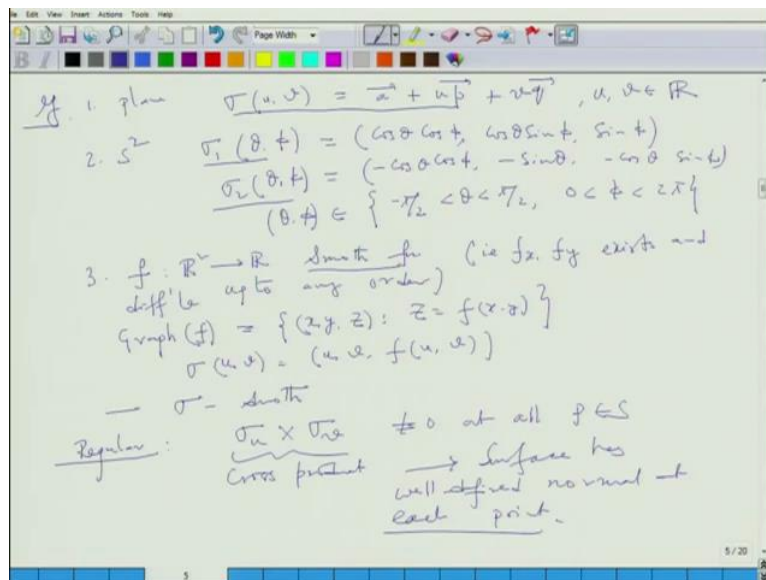 File Edit View Insert Actions Tools Help
Page Width
Eg. 1. plane σ(u,v) = a⃗ + u p⃗ + v q⃗ , u, v ∈ ℝ
2. S² σ₁(θ,ϕ) = (cosθ cosϕ, cosθ sinϕ, sinϕ)
σ₂(θ,ϕ) = (-cosθ cosϕ, -sinθ, -cosθ sinϕ)
(θ,ϕ) ∈ { -π/2 < θ < π/2, 0 < ϕ < 2π }
3. f : ℝ² → ℝ Smooth fn (ie fx, fy exists and
diff'le upto any order)
Graph(f) = {(x,y,z) : z = f(x,y)}
σ(u,v) = (u,v, f(u,v))
— σ - smooth
Regular : σu × σv ≠ 0 at all p ∈ S
Cross product → Surface has
well defined normal at
each point.
5 / 20
5